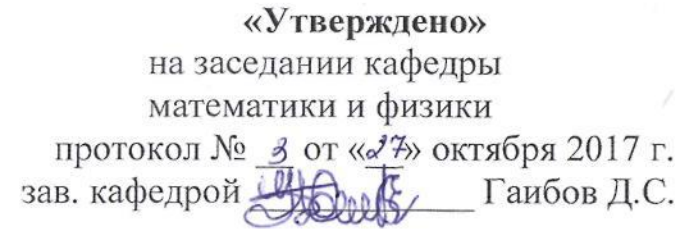 «Утверждено»
на заседании кафедры
математики и физики
протокол № 3 от «27» октября 2017 г.
зав. кафедрой Гаибов Д.С.